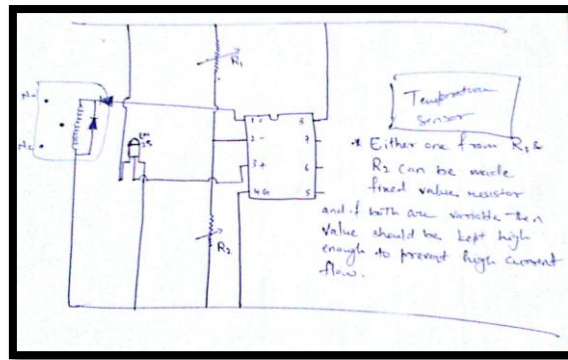 R1
1 -
8
2 -
7
3 +
6
4 G
5
LM
35
R2
Temperature
sensor
* Either one from R1 &
R2 can be made
fixed value resistor
and if both are variable then
value should be kept high
enough to prevent high current
flow.